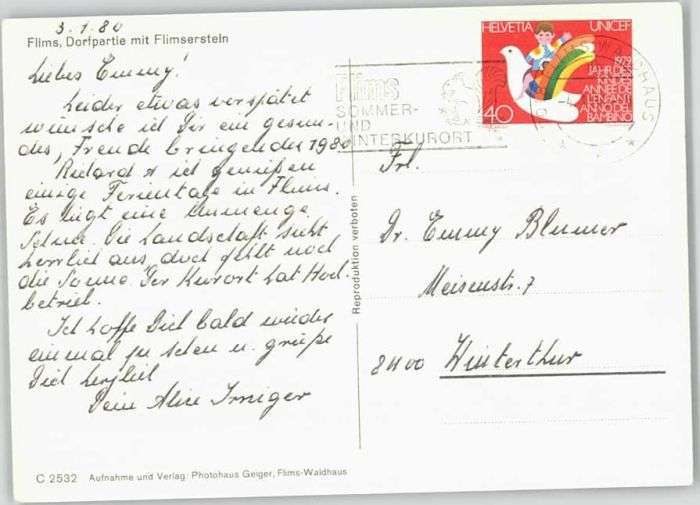 3.1.80
Flims, Dorfpartie mit Flimserstein
Liebes Emmy!
Leider etwas verspätet
wünsche ich Dir ein gesun-
des, Freude bringendes 1980
Richard & ich genießen
einige Ferientage in Flims.
Es liegt eine Unmenge
Schnee. Die Landschaft sieht
herrlich aus, doch fehlt noch
die Sonne. Der Kurort hat Hoch-
betrieb.
Ich hoffe Dich bald wieder
einmal zu sehen u. grüße
Dich herzlich
Deine Alice Irniger
C 2532 Aufnahme und Verlag: Photohaus Geiger, Flims-Waldhaus
Reproduktion verboten
Flims
SOMMER-
UND
WINTERKURORT
HELVETIA UNICEF
1979
JAHR DES
KINDES
ANNÉE DE
L'ENFANT
ANNO DEL
BAMBINO
40
WALDHAUS
Frl.
Dr. Emmy Blumer
Meisenstr. 7
8400 Winterthur